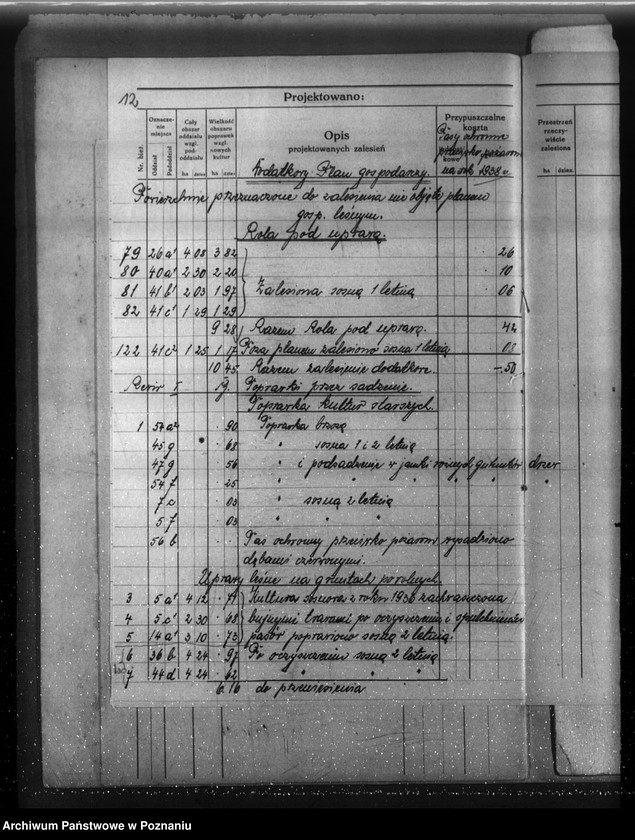 12
Projektowano:
Nr. bież.
Oznaczenie miejsca
Oddział
Pododdział
Cały obszar oddziału wzgl. pododdziału
ha
dzies.
Wielkość obszaru poprawek wzgl. nowych kultur
ha
dzies.
Opis
projektowanych zalesień
Przypuszczalne koszta
Pasy ochronne
na rok 1938
Przestrzeń rzeczywiście zalesiona
ha
dzies.
Dodatkowy Plan gospodarczy.
Powierzchnie przeznaczone do zalesienia nie objęte planem
gosp. leśnym.
Rola pod uprawą.
79 26 a¹ 4 08 3 82 · 26
80 40 a¹ 2 30 2 20 · 10
81 41 b¹ 2 03 1 97 Zalesiona sosną 1 letnią · 06
82 41 c¹ 1 29 1 29
9 28 Razem Rola pod uprawą. 42
122 41 c² 1 25 1 17 Poza planem zalesiono sosną 1 letnią 08
10 45 Razem zalesienie dodatkowe. – 50
Rewir I g. Poprawki przez sadzenie.
Poprawka kultur starszych.
1 54 a² · 90 Poprawka brzozą
45 g · 68 " sosną 1 i 2 letnią
47 g 56 " i podsadzenie w jamki różnych gatunków drzew
54 f · 25 " " " " "
7 c · 03 " sosną 2 letnią
5 f · 03 " " "
56 b · · Pas ochronny przeciwko pożarom wysadziono
dębami czerwonymi.
Uprawy leśne na gruntach porolnych.
3 5 a¹ 4 12 · 71 Kultura sosnowa z roku 1936 zachwaszczona
4 5 c¹ 2 30 · 68 bujnymi trawami po oczyszczeniu i spulchnieniu
5 14 a¹ 3 10 · 73 pasów poprawiono sosną 2 letnią.
6 36 b 4 24 · 97 Po oczyszczeniu sosną 2 letnią
7 44 d 4 24 · 62 " " "
6 16 do przeniesienia
Archiwum Państwowe w Poznaniu